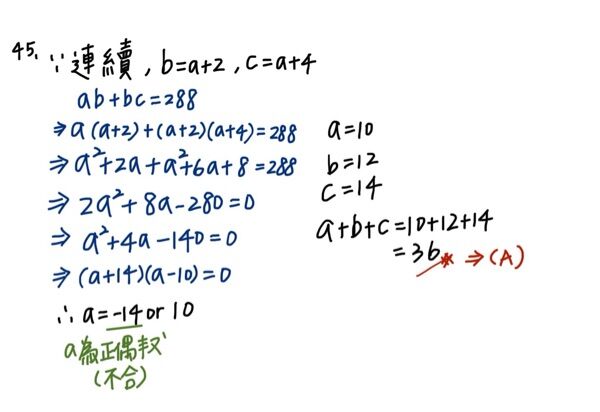 45. ∵連續, b=a+2, c=a+4
ab+bc=288
⇒a(a+2)+(a+2)(a+4)=288
⇒a²+2a+a²+6a+8=288
⇒2a²+8a-280=0
⇒a²+4a-140=0
⇒(a+14)(a-10)=0
∴a=-14 or 10
a為正偶數
(不合)
a=10
b=12
c=14
a+b+c=10+12+14
=36 ⇒(A)